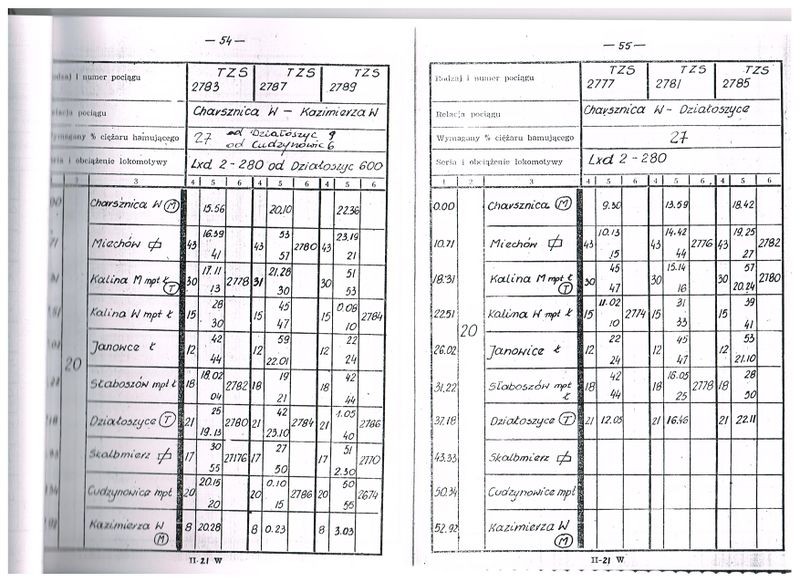 — 54 —
numer pociągu TZS 2783 TZS 2787 TZS 2789
pociągu Charsznica W – Kazimierza W
% ciężaru hamującego 27 od Działoszyc 9
od Cudzynowic 6
i obciążenie lokomotywy Lxd 2-280 od Działoszyc 600
2 3 4 5 6 4 5 6 4 5 6
Charsznica W (M) 15.56 20.10 22.36
Miechów 43 16.39 41 43 53 57 2780 43 23.19 21
Kalina M mpt Ł (T) 30 17.11 13 2778 31 21.28 30 30 51 53
Kalina W mpt Ł 15 28 30 15 45 47 15 0.08 10 2784
20
Janowce Ł 12 42 44 12 59 22.01 12 22 24
Słaboszów mpt Ł 18 18.02 04 2782 18 19 21 18 42 44
Działoszyce (T) 21 25 19.13 2780 21 42 23.10 2784 21 1.05 40 2786
Skalbmierz 17 30 55 27176 17 27 50 17 51 2.30 2770
Cudzynowice mpt 20 20.15 20 20 0.10 15 2786 20 50 55 2674
Kazimierza W (M) 8 20.28 8 0.23 8 3.03
II-21 W
— 55 —
Rodzaj i numer pociągu TZS 2777 TZS 2781 TZS 2785
Relacja pociągu Charsznica W – Działoszyce
Wymagany % ciężaru hamującego 27
Seria i obciążenie lokomotywy Lxd 2-280
1 2 3 4 5 6 4 5 6 4 5 6
0.00 Charsznica (M) 9.30 13.59 18.42
10.71 Miechów 43 10.13 15 43 14.42 44 2776 43 19.25 27 2782
18.31 Kalina M mpt Ł (T) 30 45 47 30 15.14 16 30 57 20.24 2780
22.51 Kalina W mpt Ł 15 11.02 10 2774 15 31 33 15 39 41
20
26.02 Janowice Ł 12 22 24 12 45 47 12 53 21.10
31.22 Słaboszów mpt Ł 18 42 44 18 16.05 25 2778 18 28 50
37.18 Działoszyce (T) 21 12.05 21 16.46 21 22.11
43.33 Skalbmierz
50.34 Cudzynowice mpt
52.92 Kazimierza W (M)
II-21 W